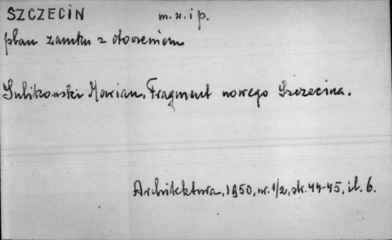 SZCZECIN m. w. i p.
plan zamku z otoczeniem
Sulikowski Marian, Fragment nowego Szczecina.
Architektura, 1950, nr. 1/2, str. 44-45, il. 6.